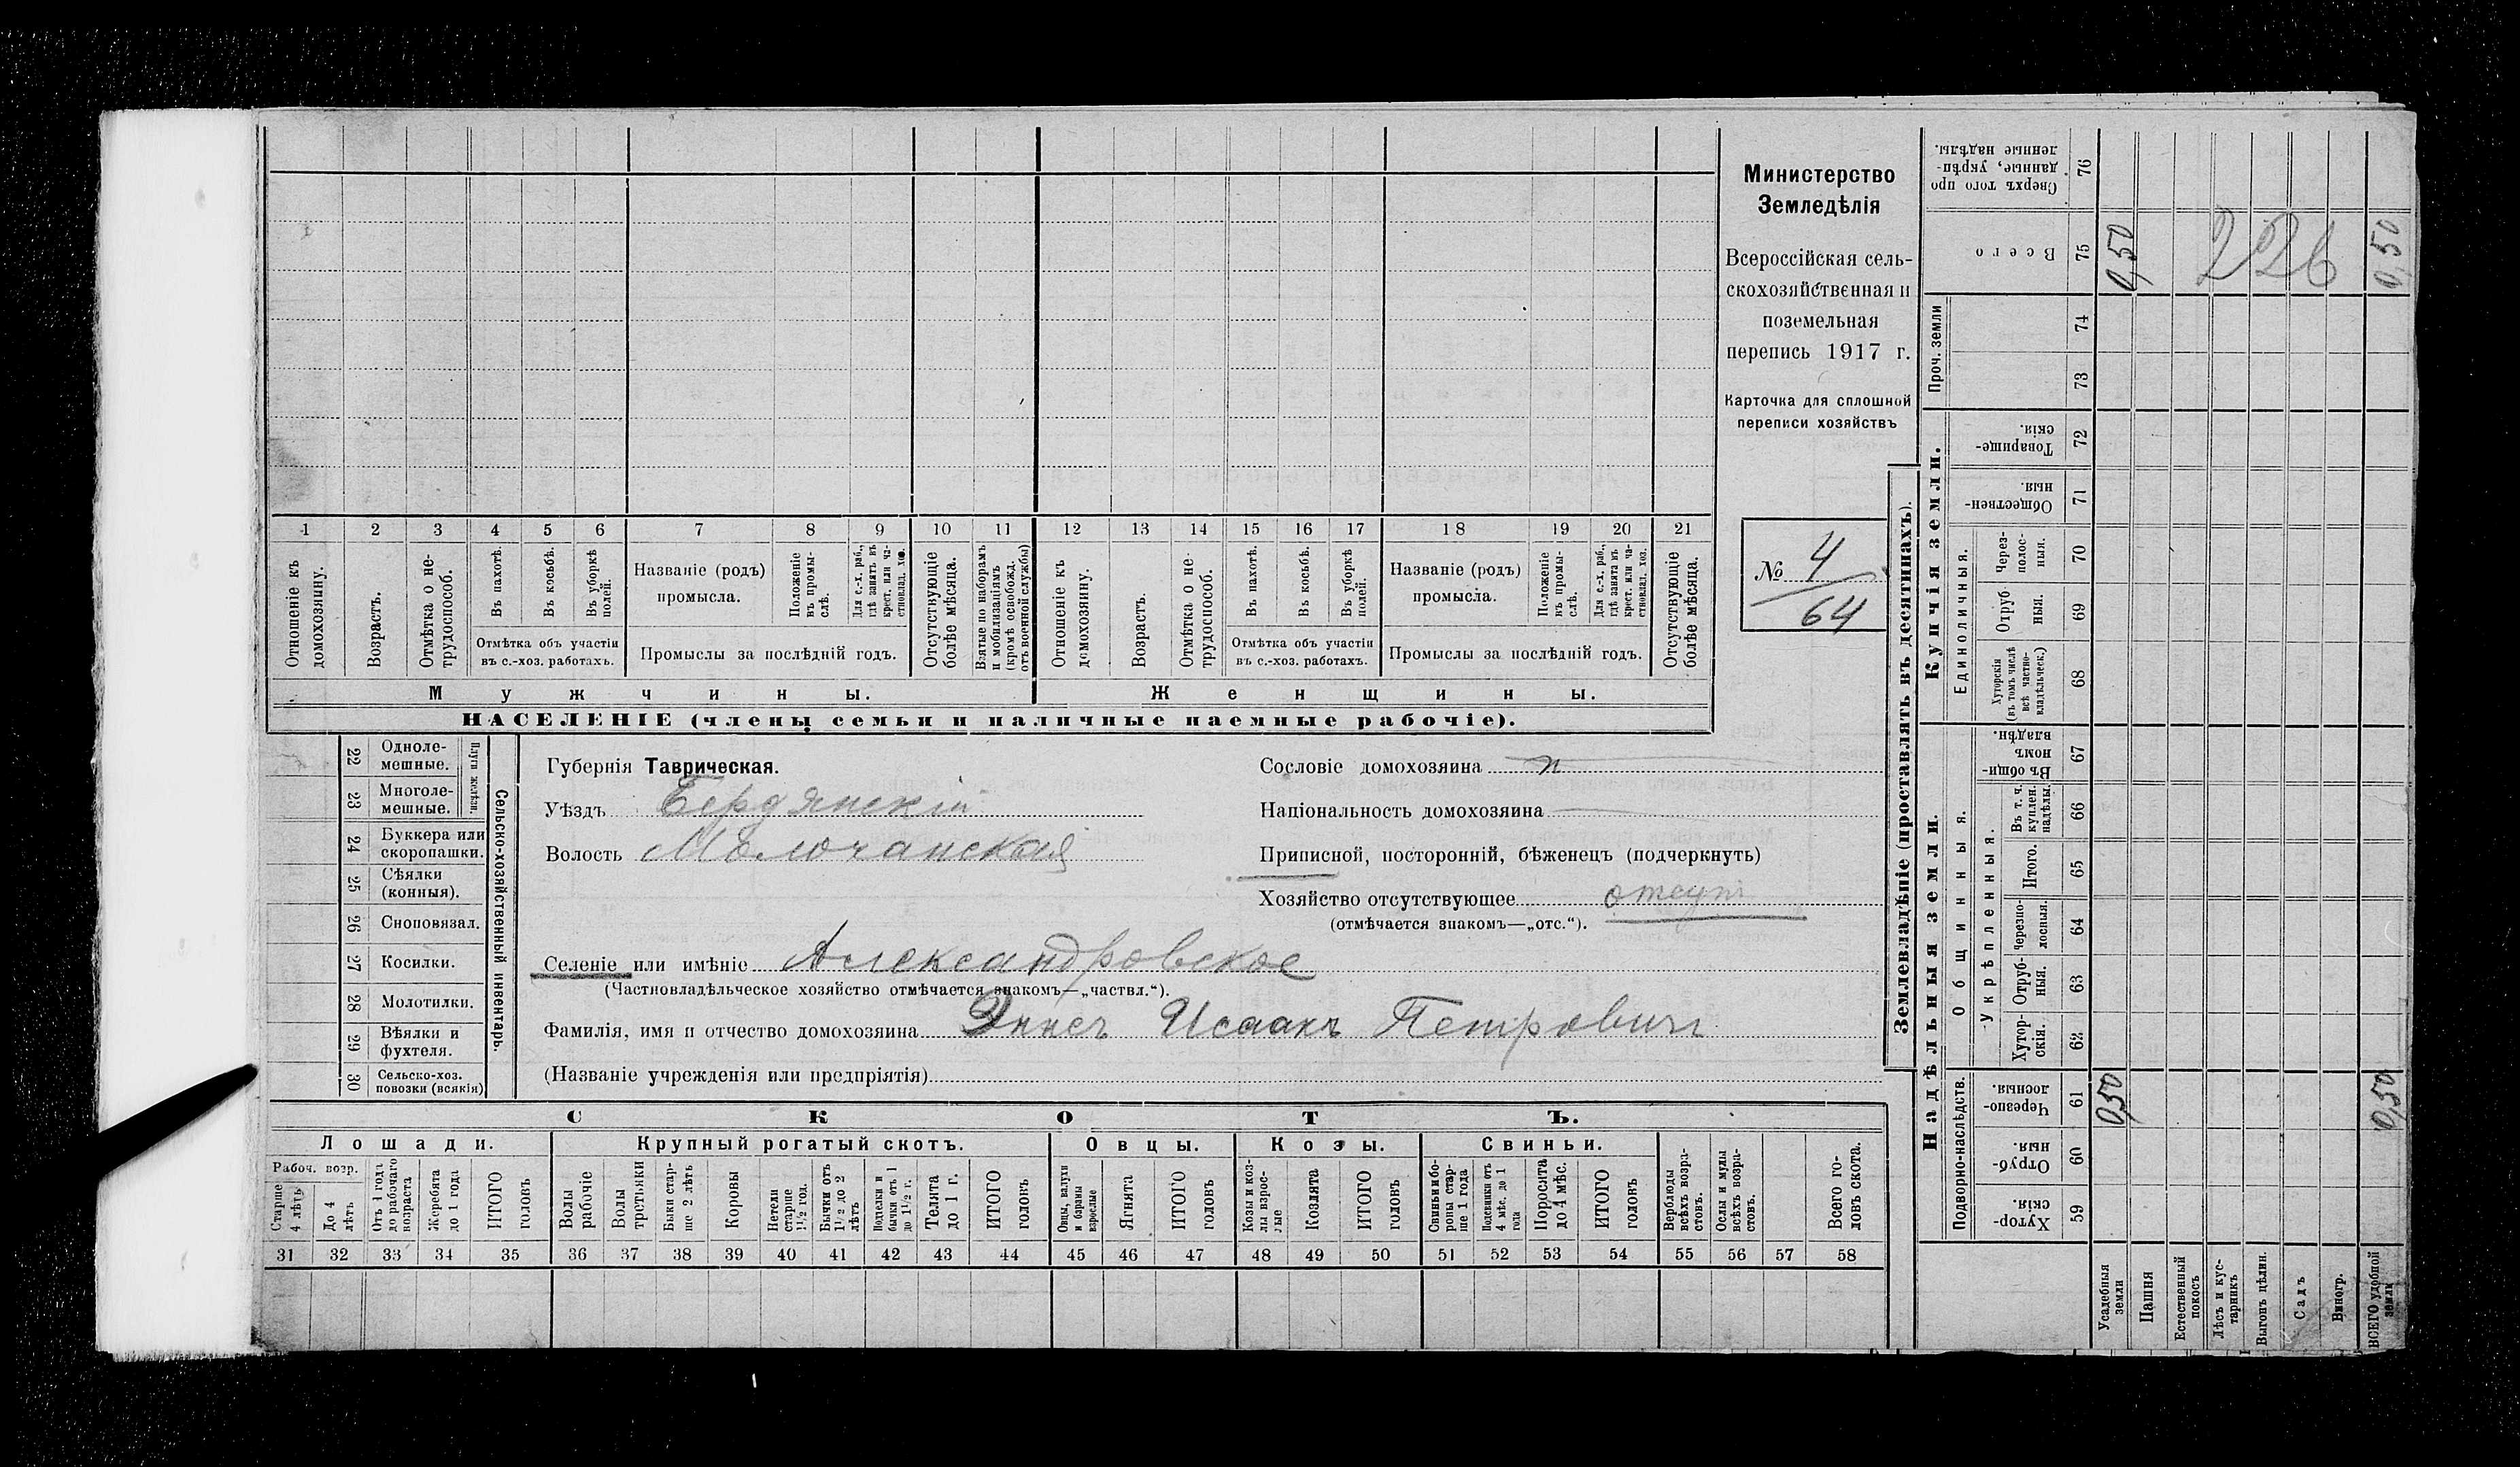 Министерство
Земледѣлія
Всероссійская сель-
скохозяйственная и
поземельная
перепись 1917 г.
Карточка для сплошной
переписи хозяйствъ
№ 4
64
1 2 3 4 5 6 7 8 9 10 11 12 13 14 15 16 17 18 19 20 21
Отношеніе къ домохозяину.
Возрастъ.
Отмѣтка о не-трудоспособ.
Въ пахотѣ.
Въ косьбѣ.
Въ уборкѣ полей.
Отмѣтка объ участіи
въ с.-хоз. работахъ.
Названіе (родъ)
промысла.
Положеніе въ промы-слѣ.
Для с.-х. раб., гдѣ занятъ въ крест. или ча-стновлад. хоз.
Промыслы за послѣдній годъ.
Отсутствующіе болѣе мѣсяца.
Взятые по наборамъ и мобилизаціямъ (кромѣ освобожд. отъ военной службы)
Отношеніе къ домохозяину.
Возрастъ.
Отмѣтка о не-трудоспособ.
Въ пахотѣ.
Въ косьбѣ.
Въ уборкѣ полей.
Отмѣтка объ участіи
въ с.-хоз. работахъ.
Названіе (родъ)
промысла.
Положеніе въ промы-слѣ.
Для с.-х. раб., гдѣ занята въ крест. или ча-стновлад. хоз.
Промыслы за послѣдній годъ.
Отсутствующіе болѣе мѣсяца.
Мужчины.
Женщины.
НАСЕЛЕНІЕ (члены семьи и наличные наемные рабочіе).
Сельско-хозяйственный инвентарь.
Плуги желѣзн.
22 Одноле-мешные.
23 Многоле-мешные.
24 Буккера или скоропашки.
25 Сѣялки (конныя).
26 Сноповязал.
27 Косилки.
28 Молотилки.
29 Вѣялки и фухтеля.
30 Сельско-хоз. повозки (всякія)
Губернія Таврическая.
Уѣздъ Бердянскій
Волость Молочанская
Сословіе домохозяина п
Національность домохозяина
Приписной, посторонній, бѣженецъ (подчеркнуть)
Хозяйство отсутствующее отсут
(отмѣчается знакомъ—„отс.“).
Селеніе или имѣніе Александровское
(Частновладѣльческое хозяйство отмѣчается знакомъ—„частвл.“).
Фамилія, имя и отчество домохозяина Эннсъ Исаакъ Петровичъ
(Названіе учрежденія или предпріятія)
СКОТЪ.
Лошади.
Крупный рогатый скотъ.
Овцы.
Козы.
Свиньи.
Рабоч. возр.
Старше 4 лѣтъ
До 4 лѣтъ
Отъ 1 года до рабочаго возраста
Жеребята до 1 года
ИТОГО головъ
Волы рабочіе
Волы третьяки
Быки стар-ше 2 лѣтъ
Коровы
Нетели старше 1½ год.
Бычки отъ 1½ до 2 лѣтъ
Подтелки и бычки отъ 1 до 1½ г.
Телята до 1 г.
ИТОГО головъ
Овцы, валухи и бараны взрослые
Ягнята
ИТОГО головъ
Козы и коз-лы взрос-лые
Козлята
ИТОГО головъ
Свиньи и бо-ровы стар-ше 1 года
Подсвинки отъ 4 мѣс. до 1 года
Поросята до 4 мѣс.
ИТОГО головъ
Верблюды всѣхъ возра-стовъ.
Ослы и мулы всѣхъ возра-стовъ.
Всего го-ловъ скота.
31 32 33 34 35 36 37 38 39 40 41 42 43 44 45 46 47 48 49 50 51 52 53 54 55 56 57 58
Землевладѣніе (проставлять въ десятинахъ).
Надѣльныя земли.
Купчія земли.
Проч. земли
Подворно-наслѣдств.
Общинныя.
Укрѣпленныя.
Единоличныя.
Хутор-скія. 59
Отруб-ныя. 60
Черезпо-лосныя. 61 0,50 0,50
Хутор-скія. 62
Отруб-ныя. 63
Черезпо-лосныя. 64
Итого. 65
Въ т. ч. куплен. надѣлы. 66
Въ общи-номъ владѣн. 67
Хуторскія (въ томъ числѣ всѣ частно-владѣльческ.) 68
Отруб-ныя. 69
Через-полос-ныя. 70
Обществен-ныя. 71
Товарище-скія. 72
73
74
Всего 75 0,50 226 0,50
Сверхъ того про-данные, укрѣп-ленные надѣлы. 76
Усадебныя земли
Пашня
Естественный покосъ
Лѣсъ и кус-тарникъ
Выгонъ цѣлин.
Садъ
Виногр.
ВСЕГО удобной земли